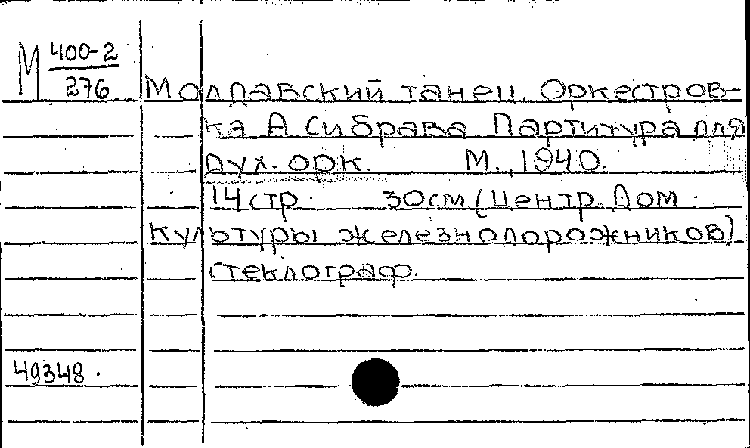 М 400-2
276
Молдавский танец. Оркестров-
ка А. Сибрава. Партитура для
дух. орк. М., 1940.
14 стр. 30 см (Центр. Дом
культуры железнодорожников)
стеклограф.
49348.